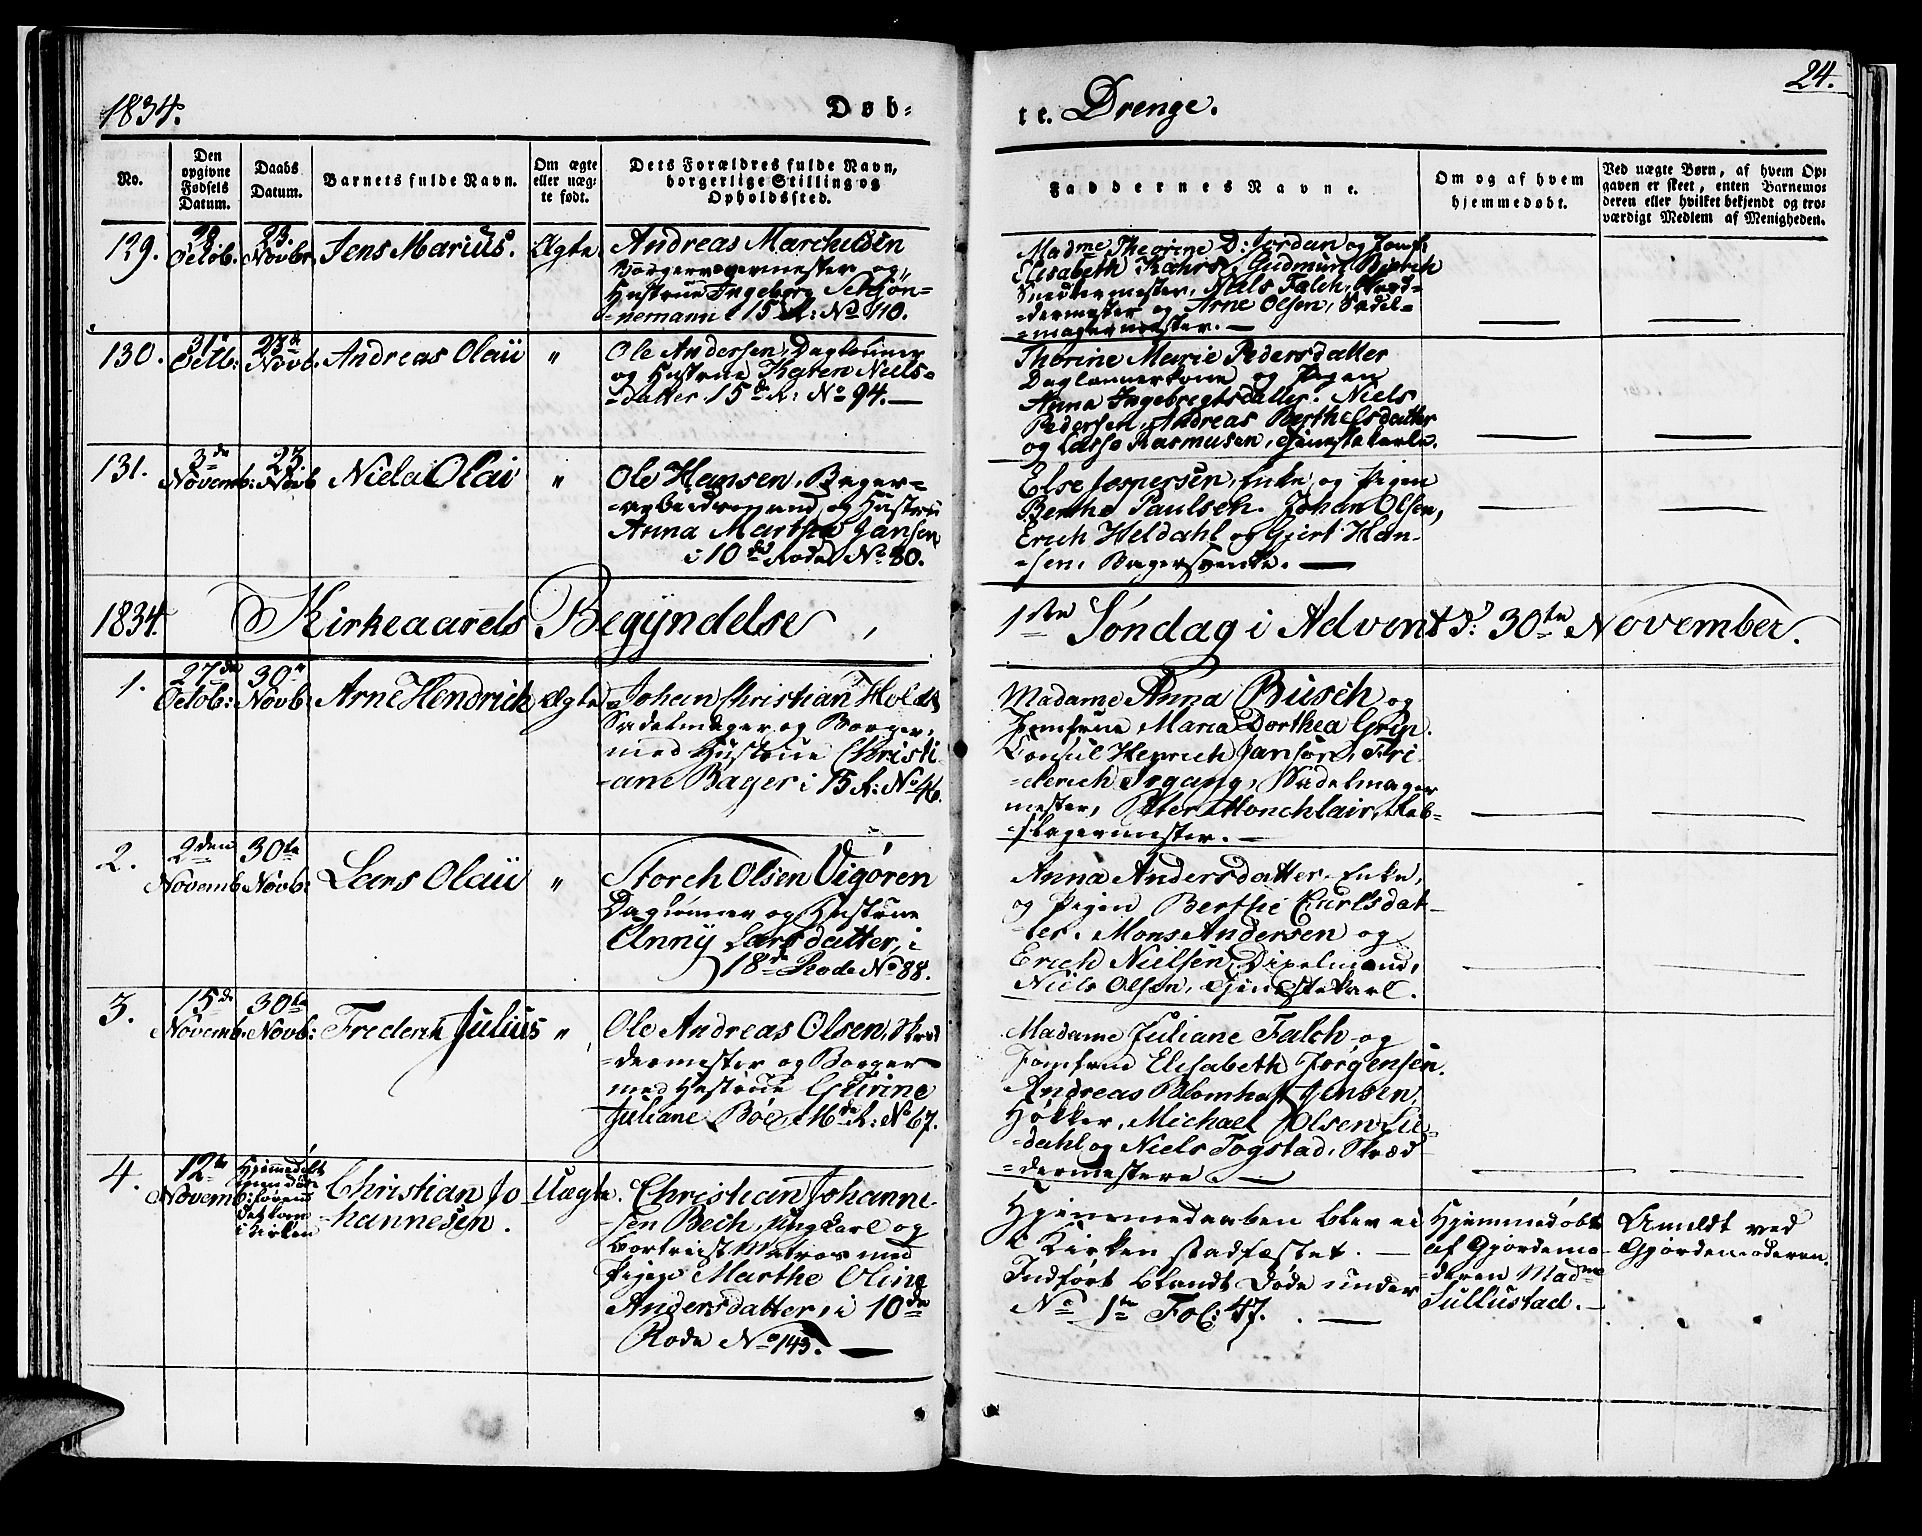 1834.
Døb-
te. Drenge.
24.
No.
Den opgivne Fødsels Datum.
Daabs Datum.
Barnets fulde Navn.
Om ægte eller uægte født.
Dets Forældres fulde Navn, borgerlige Stilling og Opholdssted.
Faddernes Navne.
Om og af hvem hjemmedøbt.
Ved uægte Børn, af hvem Opgaven er skeet, enten Barnemoderen eller hvilket bekjendt og troværdigt Medlem af Menigheden.
129.
Octob.
23. Novbr.
Jens Marius.
Ægte
Andreas
og
Hustrue Ingeborg Schjön-
nemann i 15 R: No 110.
Madme Therine D: Jordan og Jomf:
Elisabeth Kahrs, Gudmun
mester, Niels Falch, Skræd-
dermester og Arne Olsen, Sadel-
magermester. —
130.
31te Octb:
23de Novb:
Andreas Olaii
"
Ole Andersen, Dagleuner
og Hustrue Karen Niels-
datter, 15de R: No 94. —
Therine Marie Pedersdatter
Daglennerkone og Pigen
Anna Ingebregtsdatter. Niels
Pedersen, Andreas Berthelsdatter
og Lasse Rasmusen, Tjenestekarle.
131.
3de Novemb:
23 Novb
Niels Olai
"
Ole Hansen, Bager-
og Hustru
Anna Martha Jansen
i 10de Rode No 80.
Else Jespersen, Enke, og Pigen
Benthe Paulsen. Johan Olsen,
Erich Heldahl og Gjert Han-
sen, Bagersvende. —
1834. Kirkeaarets Begyndelse, 1ste Søndag i Advent d: 30te November.
1.
27de Octob:
30te Novb:
Arne Hendrich
Ægte
Johan Christian Holdt
Sadelmager og Borger,
med Hustrue Christi-
ane Bager i 15 R: No 46.
Madame Anna Busch og
Jomfrue Maria Dorthea Grip.
Consul Henrich Janson, Fri-
derich Irgang, Sadelmager-
mester, Peter Monchlair, Reb-
slagermester. —
2.
2den Novemb.
30te Novb:
Lars Olaii
"
Storch Olsen Vigøren
Daglønner og Hustrue
Anny Larsdatter, i
18de Rode No 88.
Anna Andersdatter Enke,
og Pigen Berthe Carlsdat-
ter. Mons Andersen og
Erich Nielsen, Dixelmænd,
Niels Olsen, Tjenestekarl.
3.
15de Novemb.
30te Novb:
Frederik Julius
"
Ole Andreas Olsen, Skræd-
dermester og Borger
med Hustrue Cathrine
Juliane Böe, i 16de R: No 67.
Madame Juliane Falch og
Jomfrue Elisabeth Jörgensen.
Andreas Blomhoff Jensen,
Høkker, Michael Olsen Lie-
dahl og Niels Togstad, Skræd-
dermestere. —
4.
12te Novemb:
Hjemedøbt
men døde
forend
det kom
i Kirken
Christian Jo-
hannesen.
Uægte.
Christian Johanne-
sen Bech, Ungkarl og
bortreist Matros med
Pigen Marthe Oline
Andersdatter, i 10de
Rode No 143. —
Hjemmedaaben blev ei
i Kirken stadfæstet. —
Indført blandt Døde under
No 1te Fol: 47. —
Hjemmedøbt
af Gjordemo-
deren Madme
Sullustad. —
Anmeldt ved
Gjordemoderen.